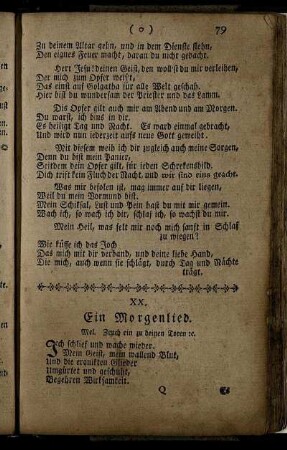 ( o ) 79
Zu deinem Altar gehn, und in dem Dienste stehn,
Den eignes Feuer macht, daran du nicht gedacht.
Herr Jesu! deinen Geist, den wollst du mir verleihen,
Der mich zum Opfer weist,
Das einst auf Golgatha für alle Welt geschah.
Hier bist du wundersam der Priester und das Lamm.
Dis Opfer gilt auch mir am Abend und am Morgen.
Du warst, ich bins in dir.
Es heiligt Tag und Nacht. Es ward einmal gebracht,
Und wird nun jederzeit aufs neue Gott geweiht.
Mit diesem weih ich dir zugleich auch meine Sorgen,
Denn du bist mein Panier,
Seitdem dein Opfer gilt, für jeden Schrekensbild.
Dich trift kein Fluch der Nacht, und wir sind eins geacht.
Was mir befolen ist, mag immer auf dir liegen,
Weil du mein Vormund bist.
Mein Schiksal, Lust und Pein hast du mit mir gemein.
Wach ich, so wach ich dir, schlaf ich, so wachst du mir.
Mein Heil, was felt mir noch mich sanft in Schlaf
zu wiegen?
Wie küsse ich das Joch
Das mich mit dir verband, und deine liebe Hand,
Die mich, auch wenn sie schlägt, durch Tag und Nächte
trägt.
XX.
Ein Morgenlied.
Mel. Zeuch ein zu deinen Toren ec.
Ich schlief und wache wieder.
Mein Geist, mein wallend Blut,
Und die erquikten Glieder
Umgürtet und geschuht,
Begehren Wirksamkeit.
Q